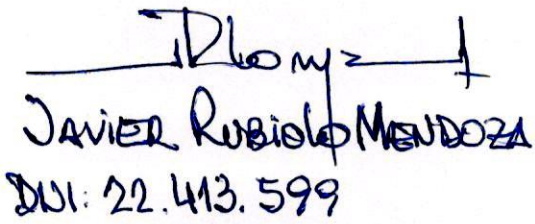 JAVIER RUBIOLO MENDOZA
DNI: 22.413.599